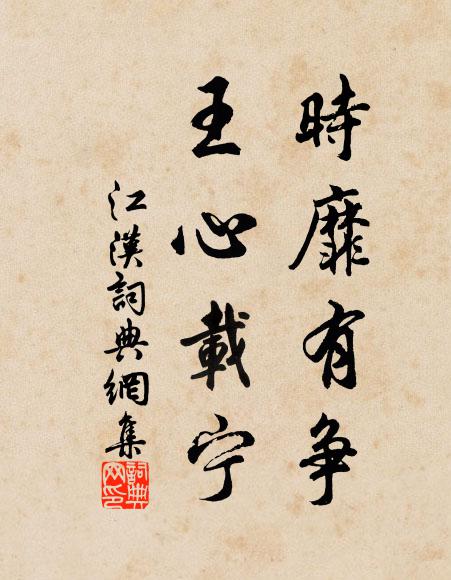 時靡有争
王心載宁
江漢詞典網集
詞典网印